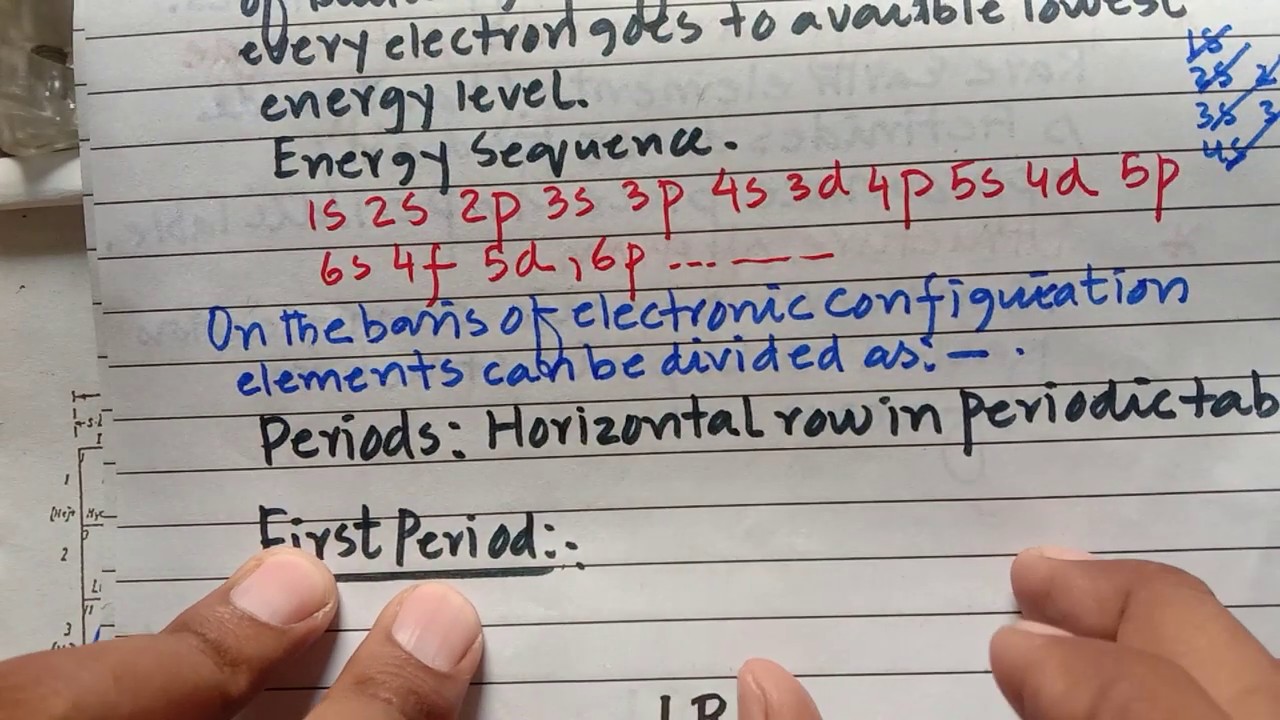 every electron goes to availble lowest
energy level.
Energy Sequence.
1s 2s 2p 3s 3p 4s 3d 4p 5s 4d 5p
6s 4f 5d, 6p ... — —
On the basis of electronic configuration
elements can be divided as:—.
Periods: Horizontal row in periodic tab
First Period:.
1s
2s
3s
4s
1
2
3